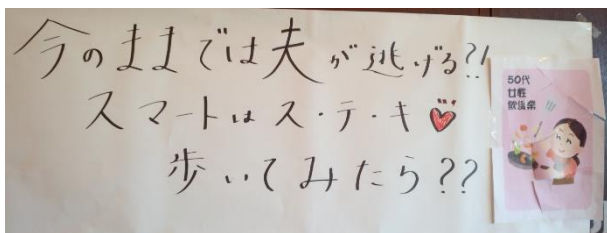 今のままでは夫が逃げる?!
スマートはス・テ・キ
歩いてみたら??
50代
女性
飲食業